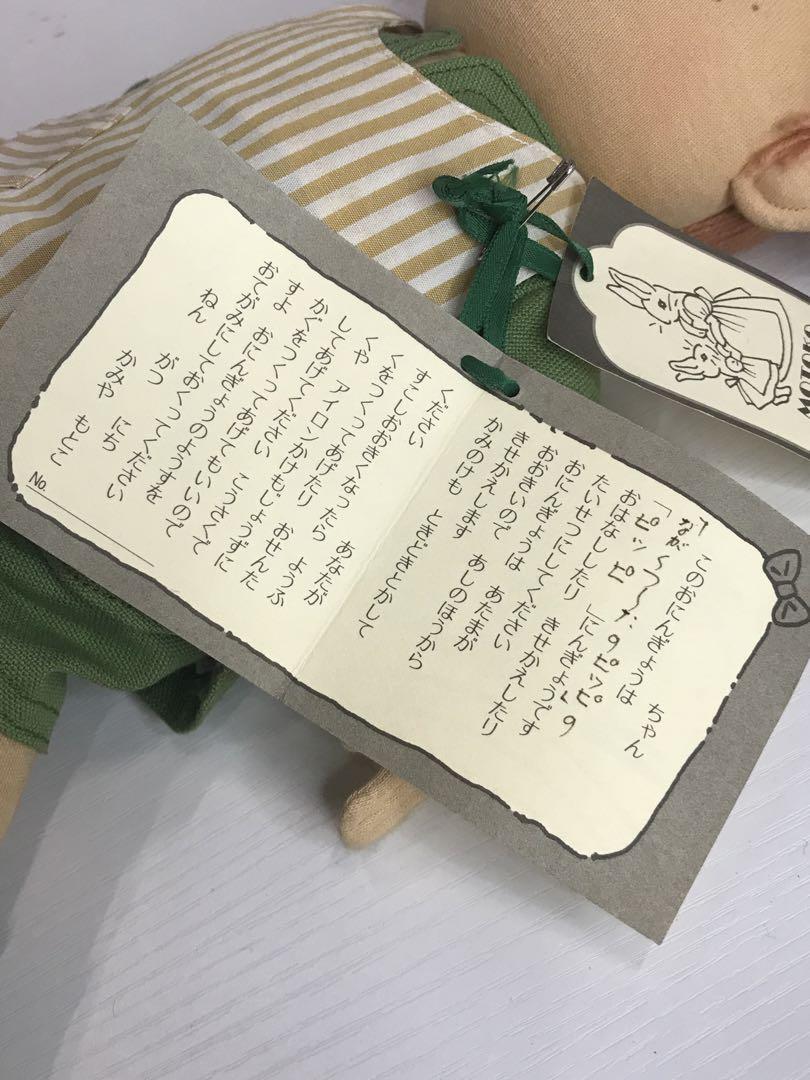 このおにんぎょうは　　ちゃん
「ながくつ
「ピッピ
おはなししたり　」にんぎょうです
たいせつにしてください　きせかえしたり
おにんぎょうは　あたまが
おおきいので　あしのほうから
きせかえします
かみのけも　ときどきとかして
ください
すこしおおきくなったら　あなたが
くをつくってあげたり　ようふ
くや　アイロンかけもじょうずに
してあげてください　おせんた
かぐをつくってあげてもいいので
すよ　おにんぎょうのようすを
おてがみにしておくってください
ねん　がつ　にち
かみや　もとこ
No.
MOTOKO